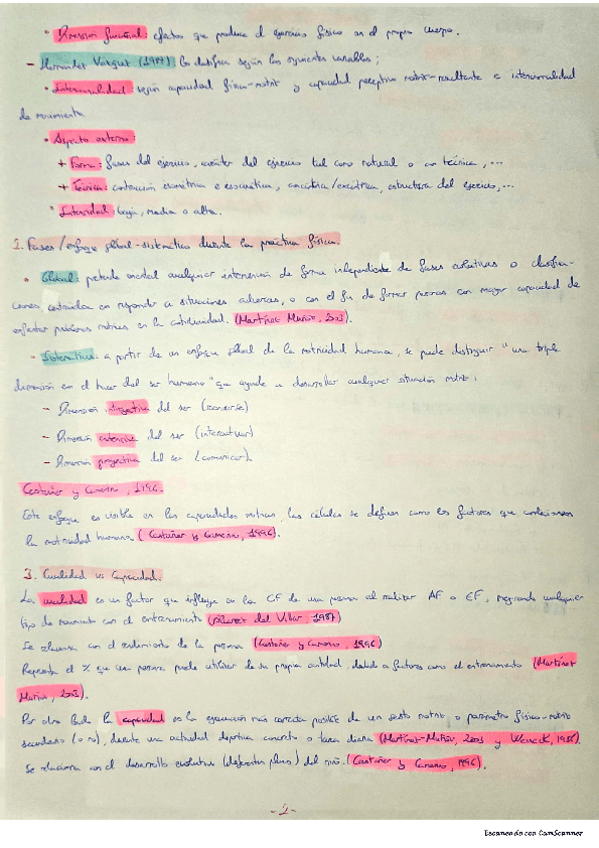 • Dimensión funcional: efectos que produce el ejercicio físico en el propio cuerpo.
- Hernández Vázquez (1984) los clasifica según las siguientes variables:
• Intencionalidad según capacidad física-motriz y capacidad perceptivo motriz-resultante e intencionalidad
de movimiento
• Aspecto externo:
+ Forma: fases del ejercicio, carácter del ejercicio tal como natural o con técnica,...
+ Técnica: contracción isométrica e isocinética, concéntrica/excéntrica, estructura del ejercicio,...
• Intensidad: baja, media o alta.
2. Fases/enfoque global-sistemático durante la práctica física.
• Global: pretende cualquier intervención de forma independiente de fases evolutivas o clasifica-
ciones centradas en responder a situaciones adversas, o con el fin de formar personas con mayor capacidad de
enfrentar problemas motrices en la cotidianidad. (Martínez Muñoz, 2003).
• Sistemático: a partir de un enfoque global de la motricidad humana, se puede distinguir "una triple
dimensión en el hacer del ser humano" que ayuda a desarrollar cualquier situación motriz:
- Dimensión introyectiva del ser (conocerse)
- Dimensión extensiva del ser (interactuar)
- Dimensión proyectiva del ser (comunicar).
Castañer y Camerino, 1996.
Este enfoque es visible en las capacidades motrices, las cuales se definen como los factores que condicionan
la motricidad humana (Castañer y Camerino, 1996).
3. Cualidad vs Capacidad.
La cualidad es un factor que influye en la CF de una persona al realizar AF o EF, mejorando cualquier
tipo de movimiento con el entrenamiento (Álvarez del Villar 1987)
Se relaciona con el rendimiento de la persona (Castañer y Camerino, 1996)
Representa el % que una persona puede utilizar de su propia cantidad, debido a factores como el entrenamiento (Martínez
Muñoz, 2003).
Por otro lado la capacidad es la ejecución más correcta posible de un gesto motriz o parámetro físico-motriz
secundario (o no), durante una actividad deportiva concreta o tarea diaria (Martínez-Muñoz, 2003 y Weineck, 1988).
Se relaciona con el desarrollo evolutivo del niño. (Castañer y Camerino, 1996).
-2-
Escaneado con CamScanner